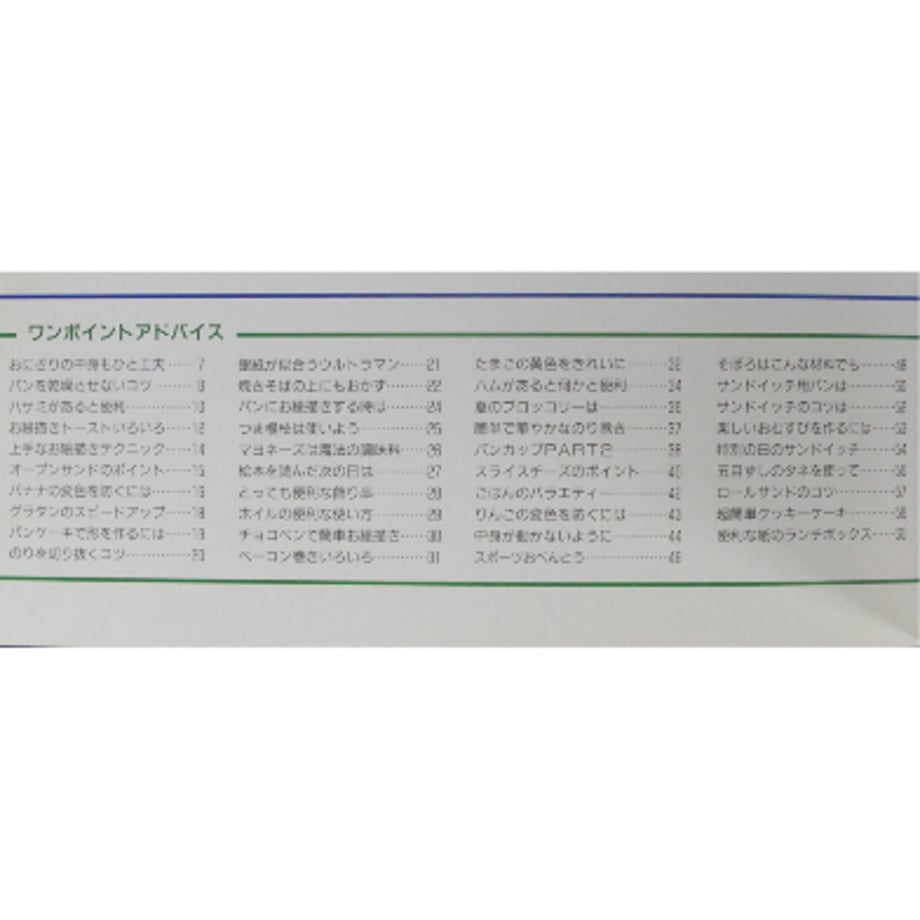 ワンポイントアドバイス
おにぎりの中身もひと工夫……7
パンを乾燥させないコツ………8
ハサミがあると便利…………10
お絵描きトーストいろいろ……12
上手なお絵描きテクニック……14
オープンサンドのポイント……15
バナナの変色を防ぐには………16
グラタンのスピードアップ……18
パンケーキで形を作るには……19
のりを切り抜くコツ…………20
銀紙が似合うウルトラマン……21
焼きそばの上にもおかず………22
パンにお絵描きする時は………24
つま楊枝は使いよう…………25
マヨネーズは魔法の調味料……26
絵本を読んだ次の日は…………27
とっても便利な飾り串…………28
ホイルの便利な使い方…………29
チョコペンで簡単お絵描き……30
ベーコン巻きいろいろ…………31
たまごの黄色をきれいに………32
ハムがあると何かと便利………34
夏のブロッコリーは…………36
簡単で華やかなのり巻き………37
パンカップPART2…………38
スライスチーズのポイント……40
ごはんのバラエティー…………42
りんごの変色を防ぐには………43
中身が動かないように…………44
スポーツおべんとう…………
そぼろはこんな材料でも………
サンドイッチ用パンは…………50
サンドイッチのコツは…………
楽しいおむすびを作るには……53
特別の日のサンドイッチ………54
五目ずしのタネを使って………
ロールサンドのコツ…………57
超簡単クッキーケーキ…………
便利な紙のランチボックス……